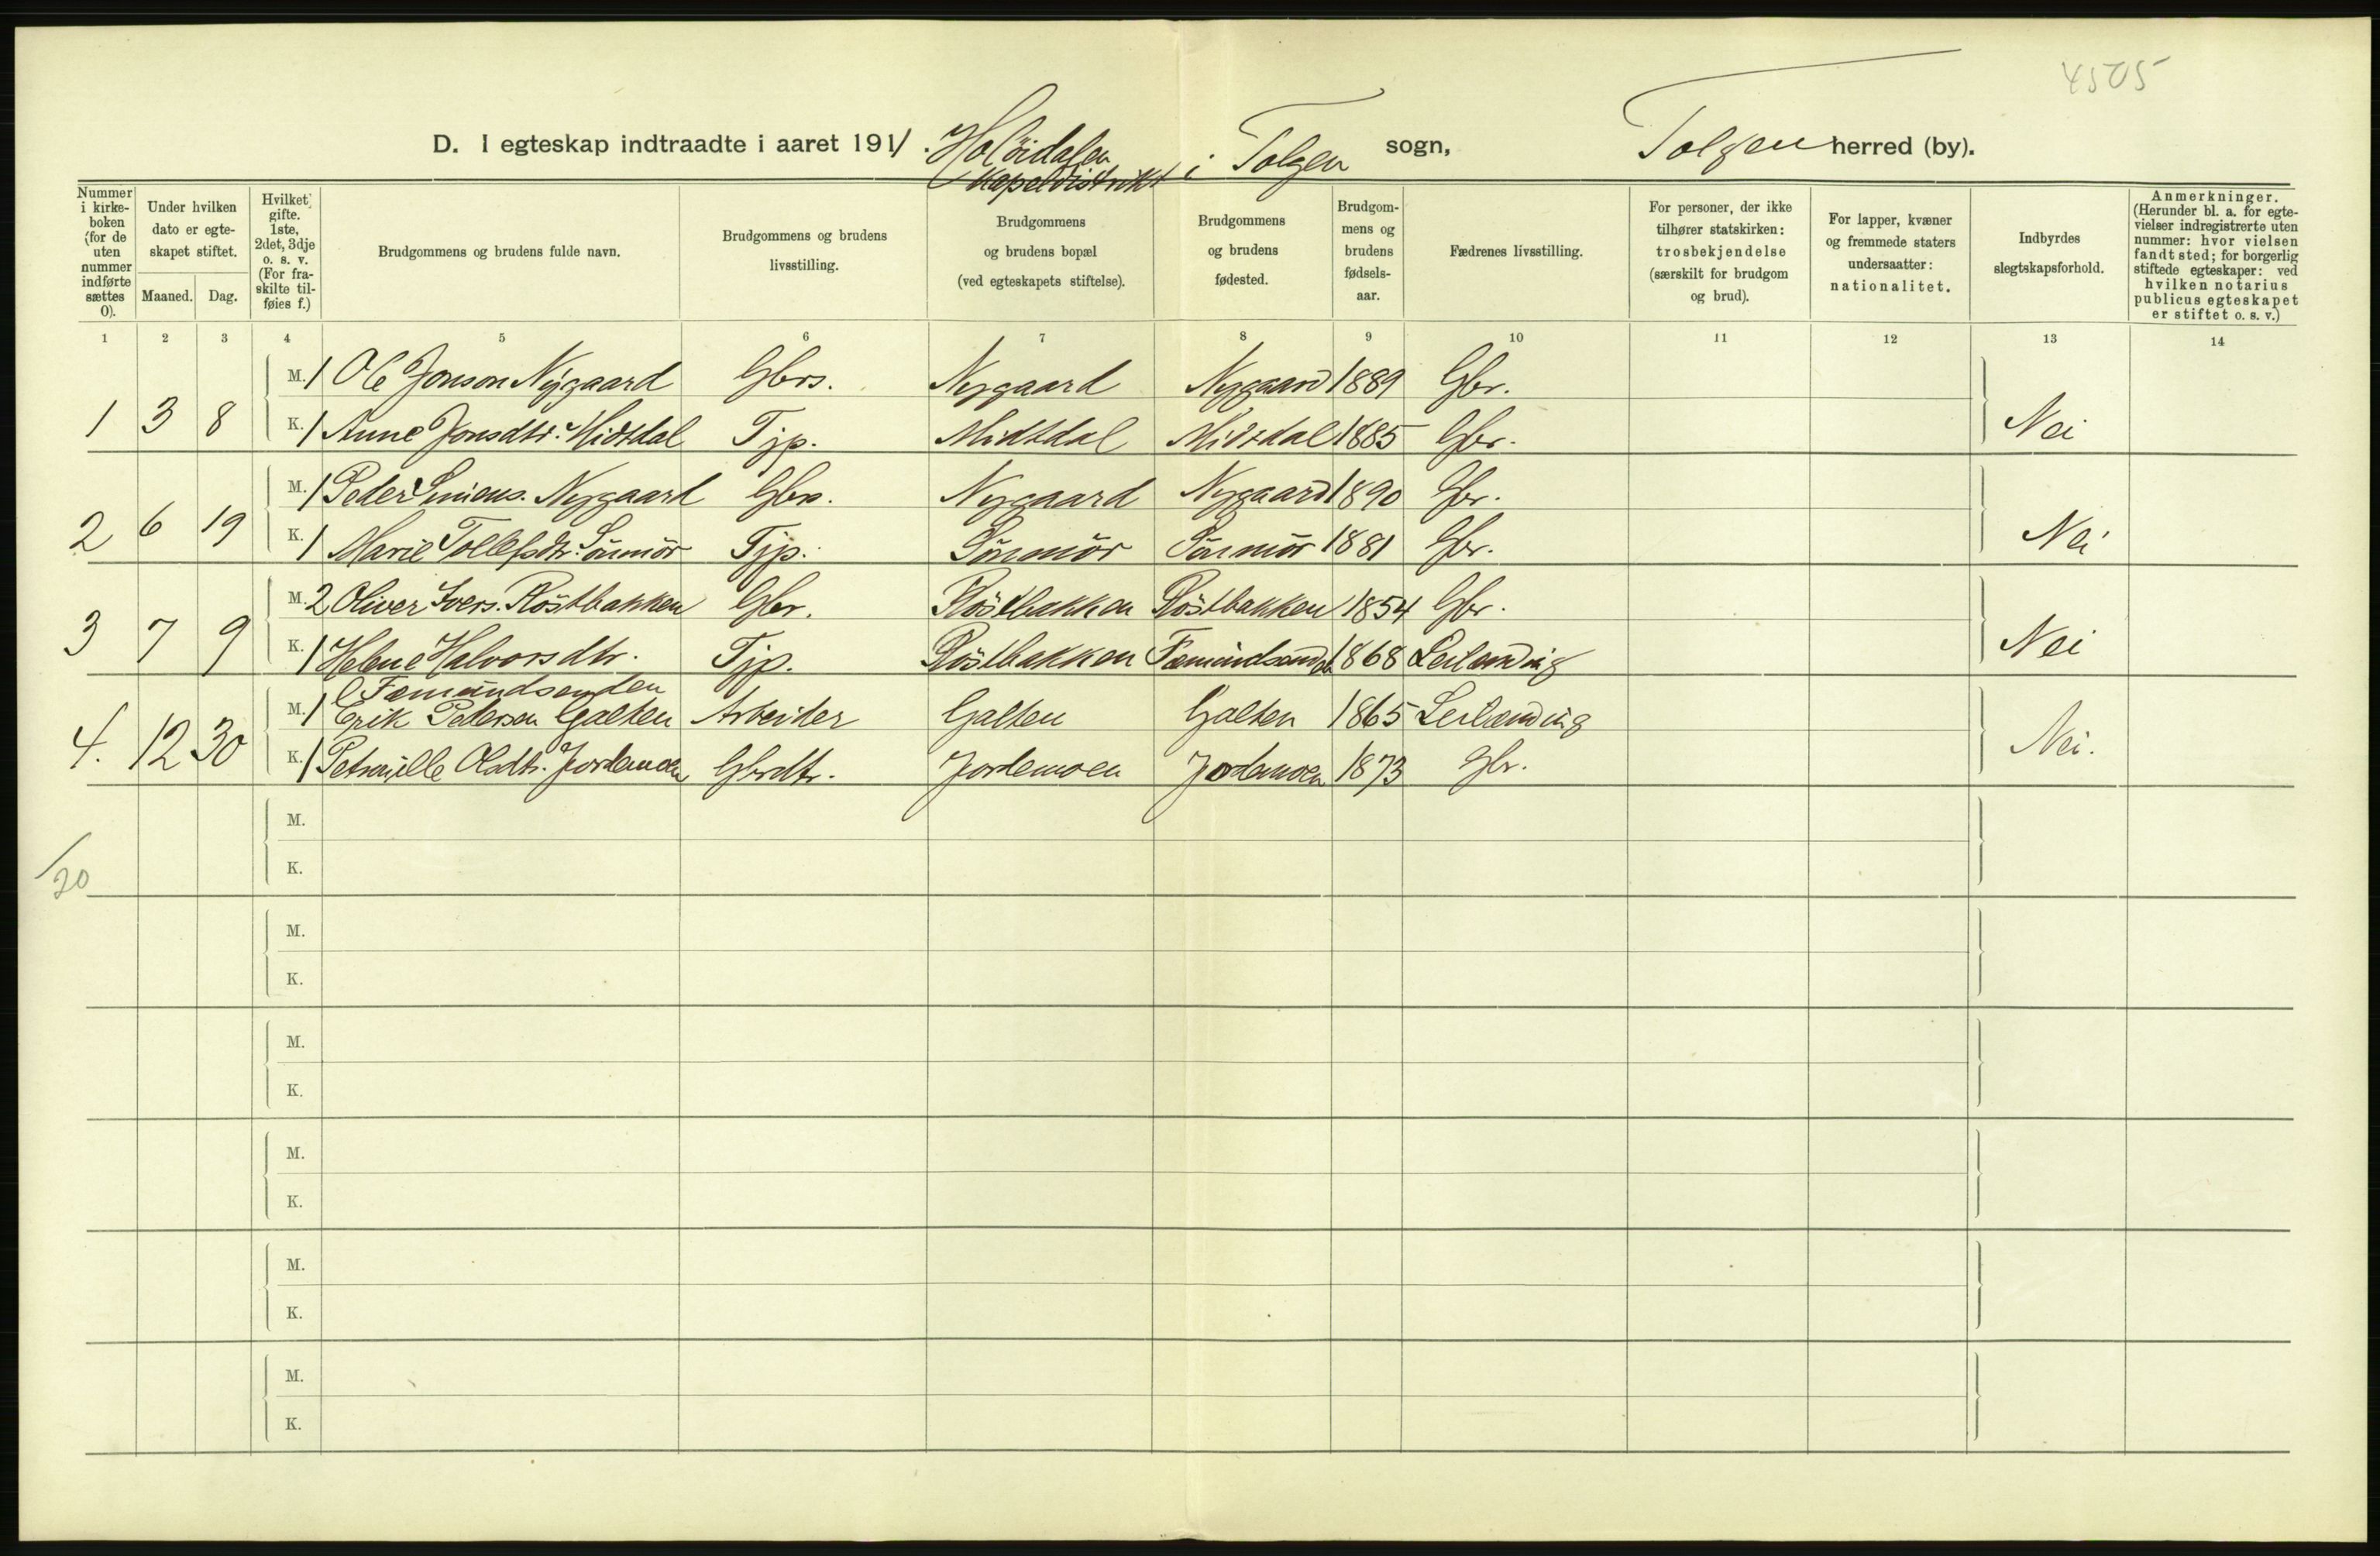 4505
D. I egteskap indtraadte i aaret 1911. Holöidalen Kapeldistrikt i Tolgen sogn, Tolgen herred (by).
Nummer i kirke-boken (for de uten nummer indførte sættes 0).
Under hvilken dato er egte-skapet stiftet.
Maaned. Dag.
Hvilket gifte. 1ste, 2det, 3dje o. s. v. (For fra-skilte til-føies f.)
Brudgommens og brudens fulde navn.
Brudgommens og brudens livsstilling.
Brudgommens og brudens bopæl (ved egteskapets stiftelse).
Brudgommens og brudens fødested.
Brudgom-mens og brudens fødsels-aar.
Fædrenes livsstilling.
For personer, der ikke tilhører statskirken: trosbekjendelse (særskilt for brudgom og brud).
For lapper, kvæner og fremmede staters undersaatter: nationalitet.
Indbyrdes slegtskapsforhold.
Anmerkninger. (Herunder bl. a. for egte-vielser indregistrerte uten nummer: hvor vielsen fandt sted; for borgerlig stiftede egteskaper: ved hvilken notarius publicus egteskapet er stiftet o. s. v.)
1 2 3 4 5 6 7 8 9 10 11 12 13 14
M. 1 Ole Jonson Nygaard Gbrs. Nygaard Nygaard 1889 Gbr.
1 3 8 K. 1 Anne Jonsdtr. Midtdal Tjp. Midtdal Midtdal 1885 Gbr. Nei
M. 1 Peder Simens. Nygaard Gbrs. Nygaard Nygaard 1890 Gbr.
2 6 19 K. 1 Marie Tollefsdtr. Sönmör Tjp. Sönmör Sönmör 1881 Gbr. Nei
M. 2 Oliver Ivers. Röstbakken Gbr. Röstbakken Röstbakken 1854 Gbr.
3 7 9 K. 1 Helene Halvorsdtr. Tjp. Röstbakken Fæmundsenden 1868 Leilænding Nei
Fæmundsenden
M. 1 Erik Pedersen Galten Arbeider Galten Galten 1865 Leilænding
4. 12 30 K. 1 Petronille Olsdtr. Jordemoen Gbrdtr. Jordemoen Jordemoen 1873 Gbr. Nei.
M.
/20 K.
M.
K.
M.
K.
M.
K.
M.
K.
M.
K.